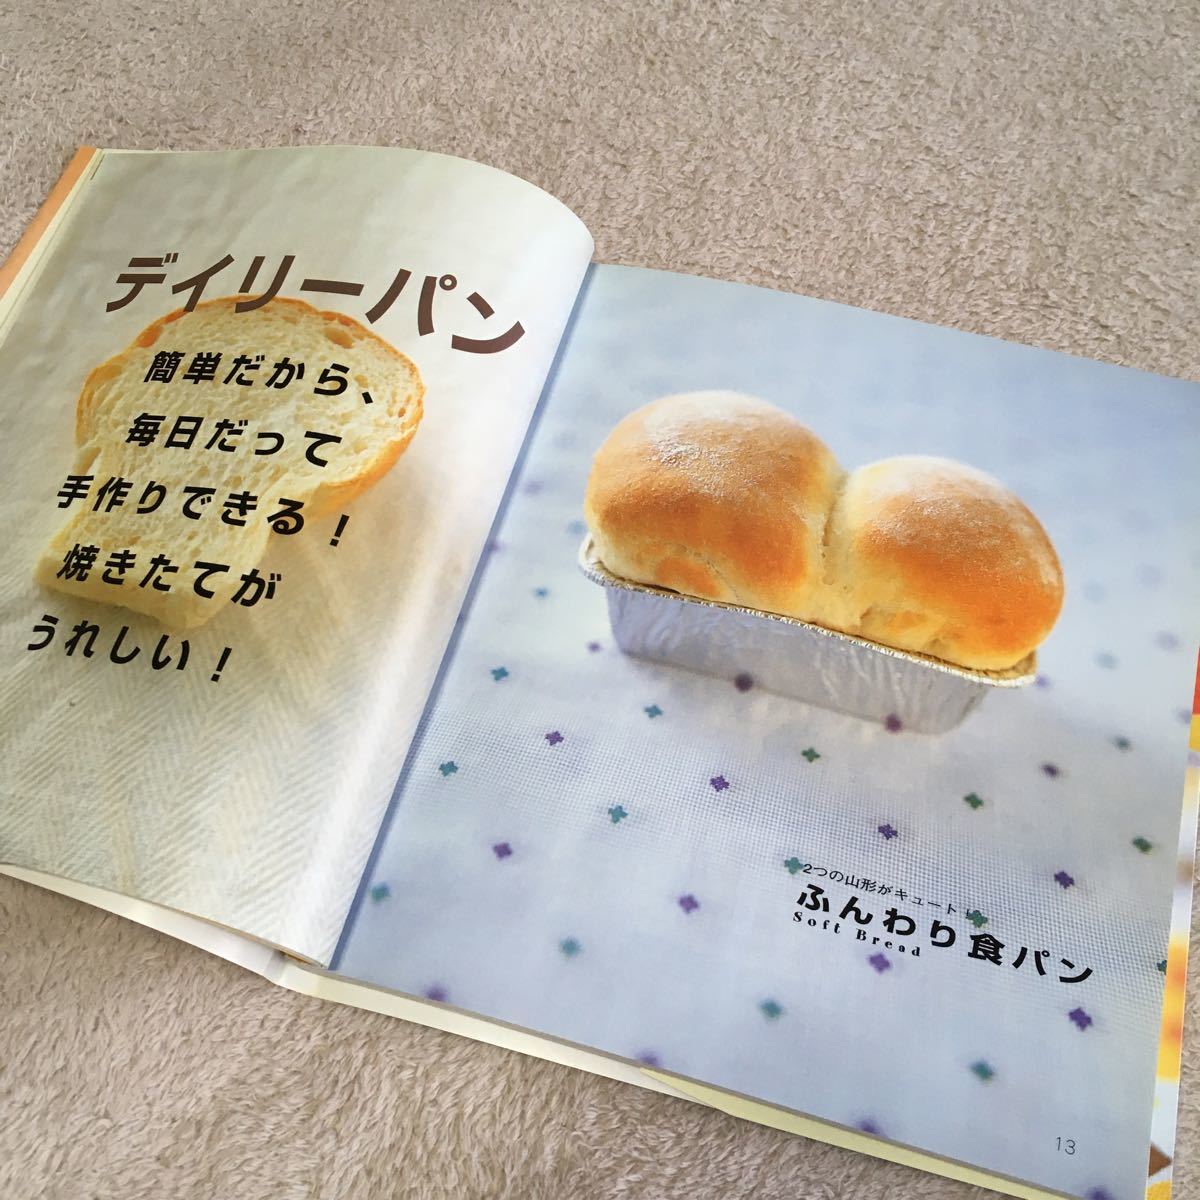 デイリーパン
簡単だから、
毎日だって
手作りできる！
焼きたてが
うれしい！
2つの山形がキュート！
ふんわり食パン
Soft Bread
13